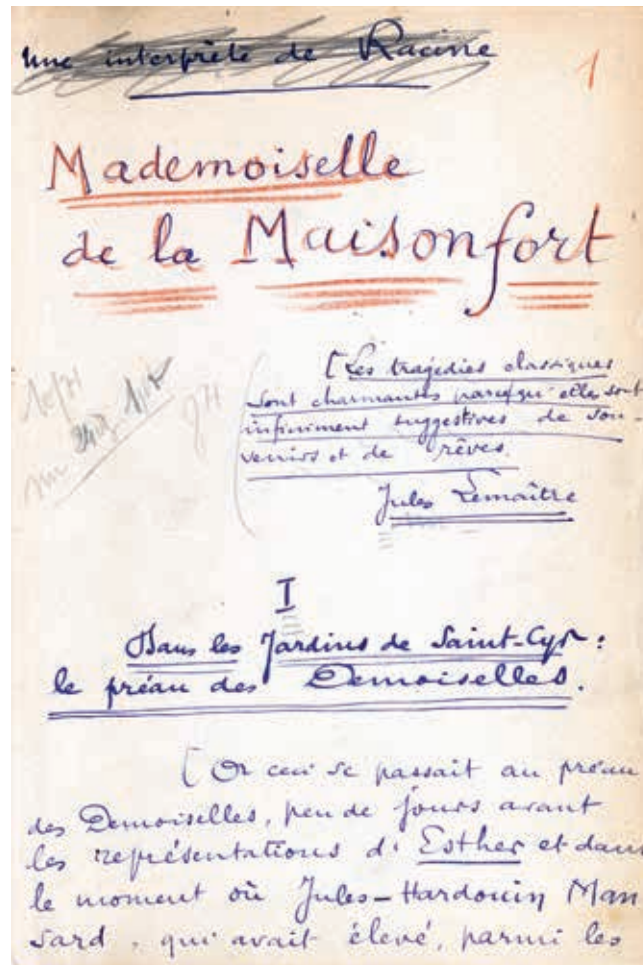 Une interprète de Racine
1
Mademoiselle
de la Maisonfort
[Les tragédies classiques
sont charmantes parcequ'elles sont
infiniment suggestives de sou-
venirs et de rêves.
Jules Lemaître
I
Dans les Jardins de Saint-Cyr :
le préau des Demoiselles.
[Or ceci se passait au préau
des Demoiselles, peu de jours avant
les représentations d'Esther et dans
le moment où Jules-Hardouin Man
sard, qui avait élevé, parmi les